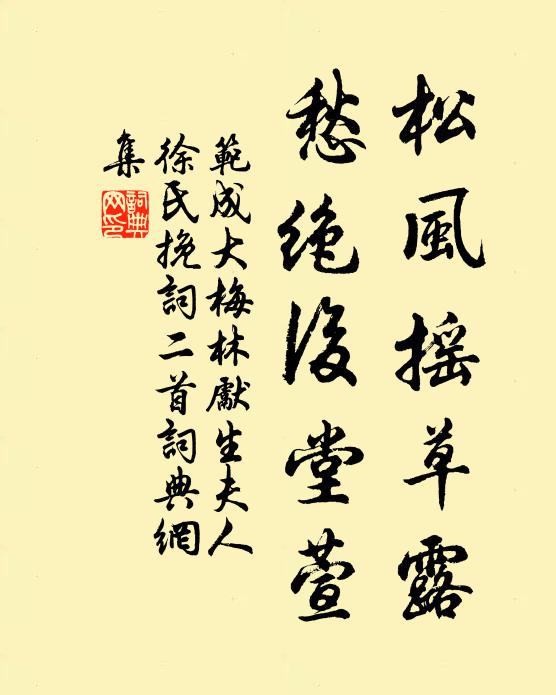 松風摇草露
愁絶後堂萱
範成大梅林獻生夫人
徐氏挽詞二首詞典網
集
詞典
网印